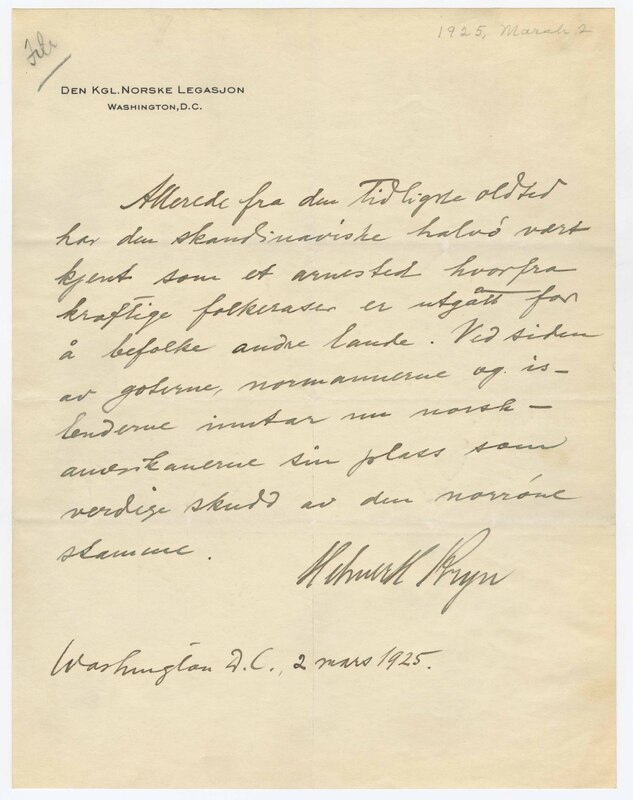 1925, March 2
File
DEN KGL. NORSKE LEGASJON
WASHINGTON, D.C.
Allerede fra den tidligste oldtid
har den skandinaviske halvö vært
kjent som et arnested hvorfra
kraftige folkeraser er utgått for
å befolke andre lande. Ved siden
av goterne, normannerne og is-
lenderne inntar nu norsk-
amerikanerne sin plass som
verdige skudd av den norröne
stamme.
Helmer H Bryn
Washington D.C., 2 mars 1925.